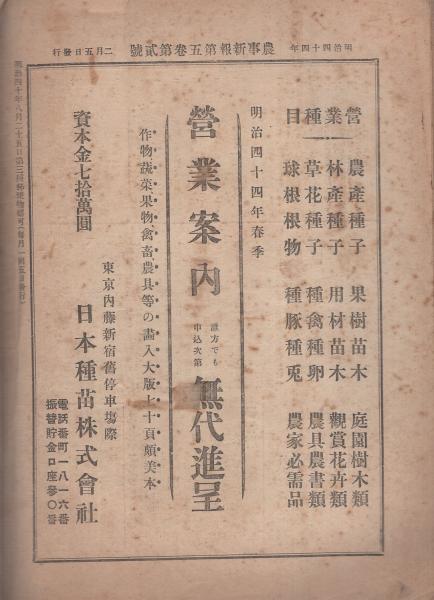 明治四十四年 農事新報第五卷第貳號 二月五日發行
營業種目
農產種子 果樹苗木 庭園樹木類
林產種子 用材苗木 觀賞花卉類
草花種子 種禽種卵 農具農書類
球根根物 種豚種兎 農家必需品
明治四十四年春季
營業案内
誰方でも
申込次第
無代進呈
作物蔬菜果物禽畜農具等の畵入大版七十頁頗美本
東京内藤新宿舊停車塲際
資本金七拾萬圓 日本種苗株式會社
電話番町一八一六番
振替貯金口座參〇番
明治四十年八月二十五日第三種郵便物認可(每月一回五日發行)